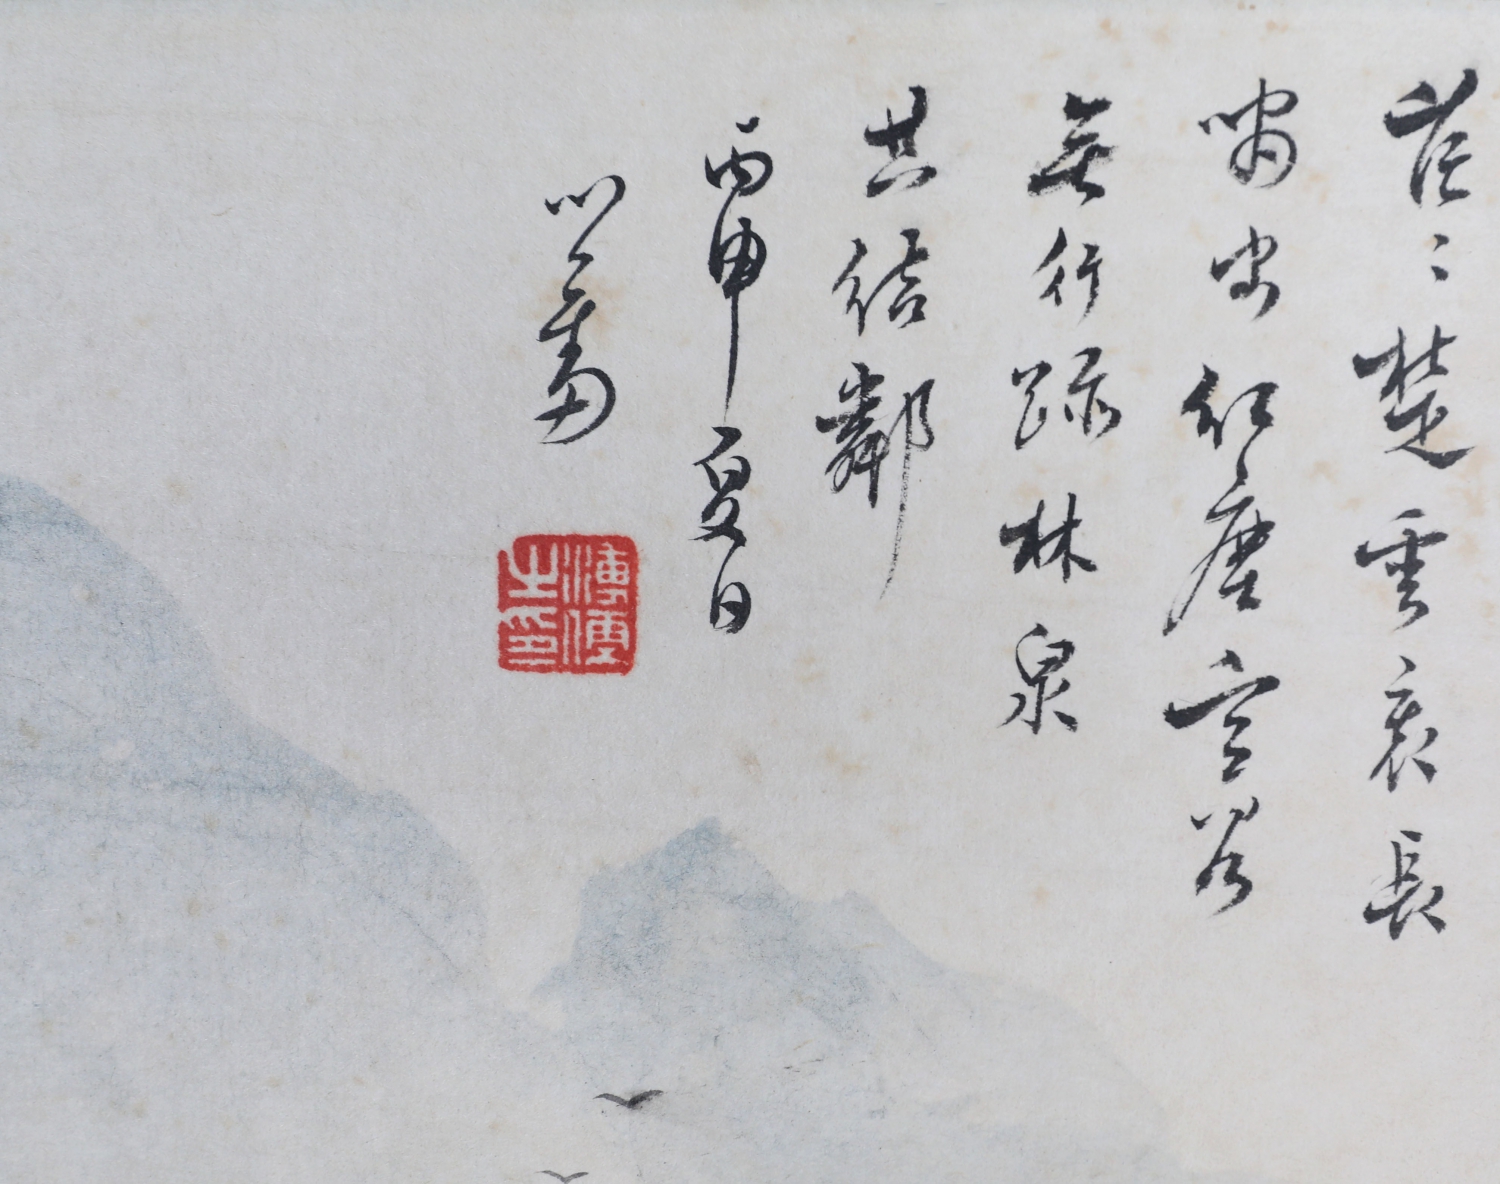 茫〻楚雲裏長
嘯出紅塵空谷
無行跡林泉
共結鄰
丙申夏日
心畬
溥儒之印